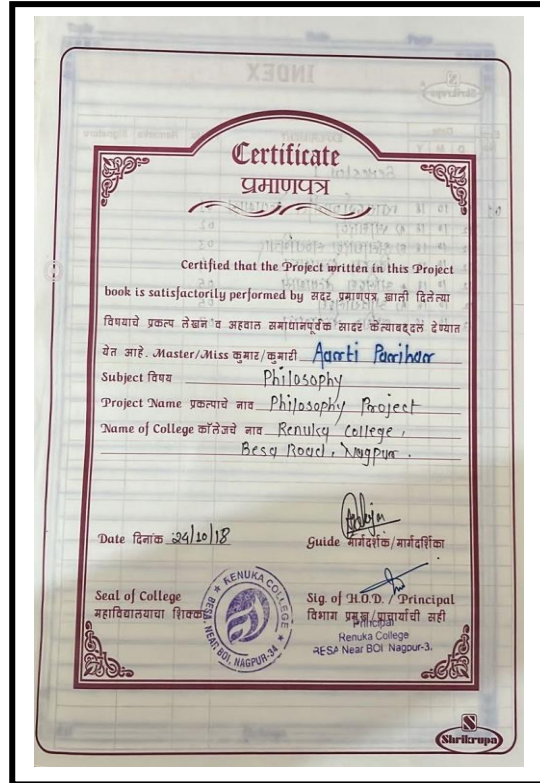 Certificate
प्रमाणपत्र
Certified that the Project written in this Project
book is satisfactorily performed by सदर प्रमाणपत्र खाली दिलेल्या
विषयाचे प्रकल्प लेखन व अहवाल समाधानपूर्वक सादर केल्याबद्दल देण्यात
येत आहे. Master/Miss कुमार/कुमारी Aarti Parihar
Subject विषय Philosophy
Project Name प्रकल्पाचे नाव Philosophy Project
Name of College कॉलेजचे नाव Renuka College,
Besa Road, Nagpur.
Date दिनांक :24/10/18
Guide मार्गदर्शक/मार्गदर्शिका
Seal of College
महाविद्यालयाचा शिक्का
RENUKA COLLEGE
BESA NEAR BOI, NAGPUR-34
Sig. of H.O.D. / Principal
विभाग प्रमुख/प्राचार्याची सही
Principal
Renuka College
BESA Near BOI Nagpur-3.
Shrikrupa